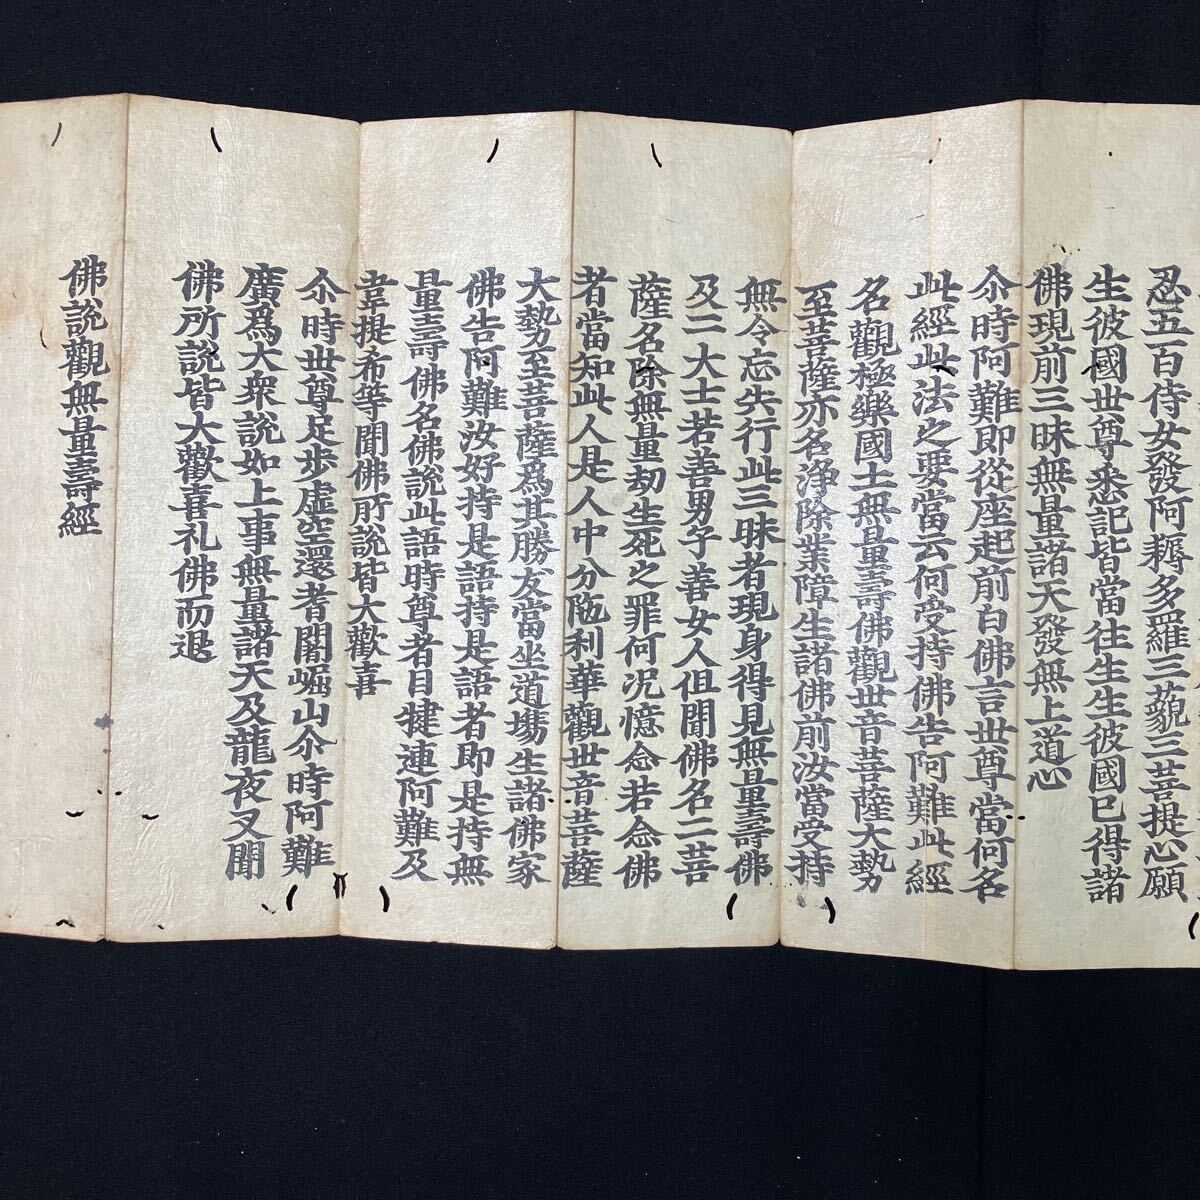 忍五百侍女發阿耨多羅三藐三菩提心願
生彼國世尊悉記皆當往生生彼國已得諸
佛現前三昧無量諸天發無上道心
尒時阿難即從座起前白佛言世尊當何名
此經此法之要當云何受持佛告阿難此經
名觀極樂國土無量壽佛觀世音菩薩大勢
至菩薩亦名淨除業障生諸佛前汝當受持
無令忘失行此三昧者現身得見無量壽佛
及二大士若善男子善女人但聞佛名二菩
薩名除無量劫生死之罪何況憶念若念佛
者當知此人是人中分陁利華觀世音菩薩
大勢至菩薩為其勝友當坐道場生諸佛家
佛告阿難汝好持是語持是語者即是持無
量壽佛名佛說此語時尊者目犍連阿難及
韋提希等聞佛所說皆大歡喜
尒時世尊足步虛空還耆闍崛山尒時阿難
廣為大衆說如上事無量諸天及龍夜叉聞
佛所說皆大歡喜礼佛而退
佛說觀無量壽經